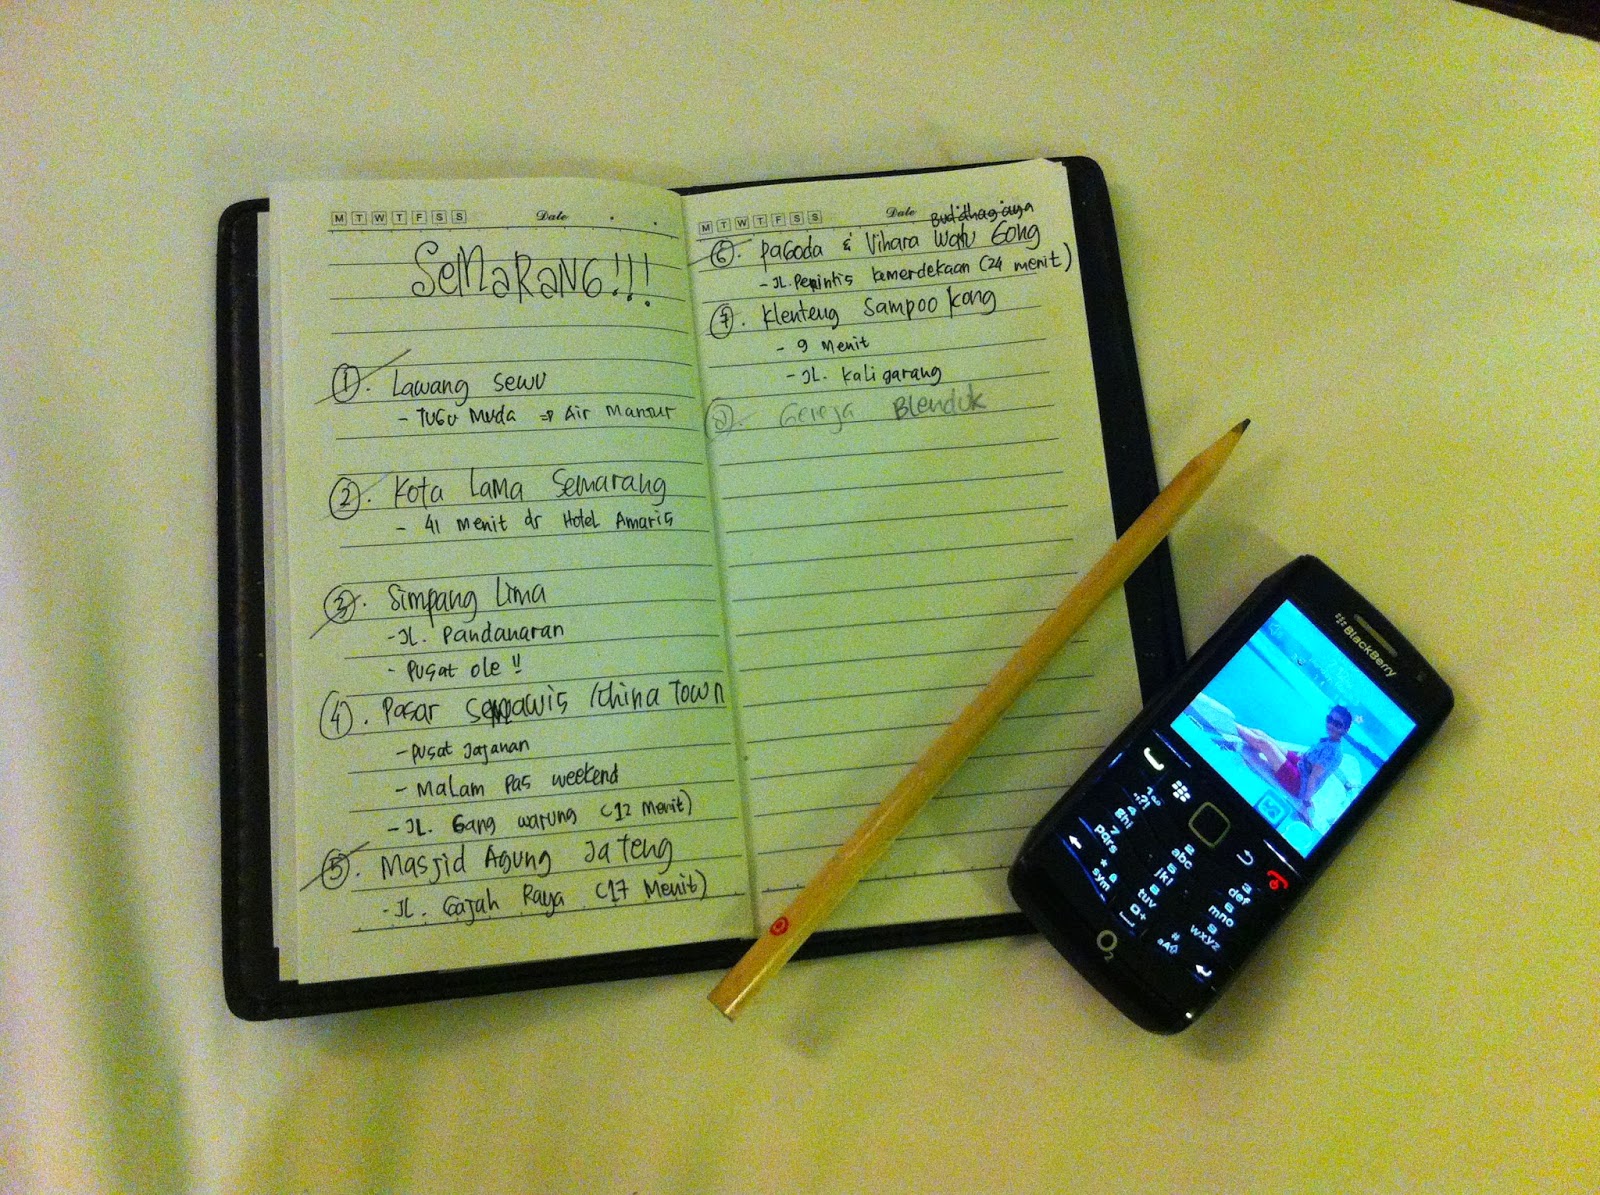 M T W T F S S Date
SEMARANG!!!
1. Lawang sewu
- Tugu Muda => Air Mancur
2. Kota Lama Semarang
- 41 Menit dr Hotel Amaris
3. Simpang Lima
- JL. Pandanaran
- Pusat ole !!
4. Pasar Semawis / China Town
- Pusat Jajanan
- Malam Pas weekend
- JL. Gang warung (12 Menit)
5. Masjid Agung Jateng
- JL. Gajah Raya (17 Menit)
M T W T F S S Date
Buddhagaya
6. Pagoda & Vihara Watu Gong
- JL. Perintis kemerdekaan (24 menit)
7. Klenteng Sampoo kong
- 9 Menit
- JL. Kaligarang
8. Gereja Blenduk
BlackBerry
1
2 abc
3 def
4 ghi
5 jkl
6 mno
7 pqrs
8 tuv
9 wxyz
* sym
0 +
# aA
O2